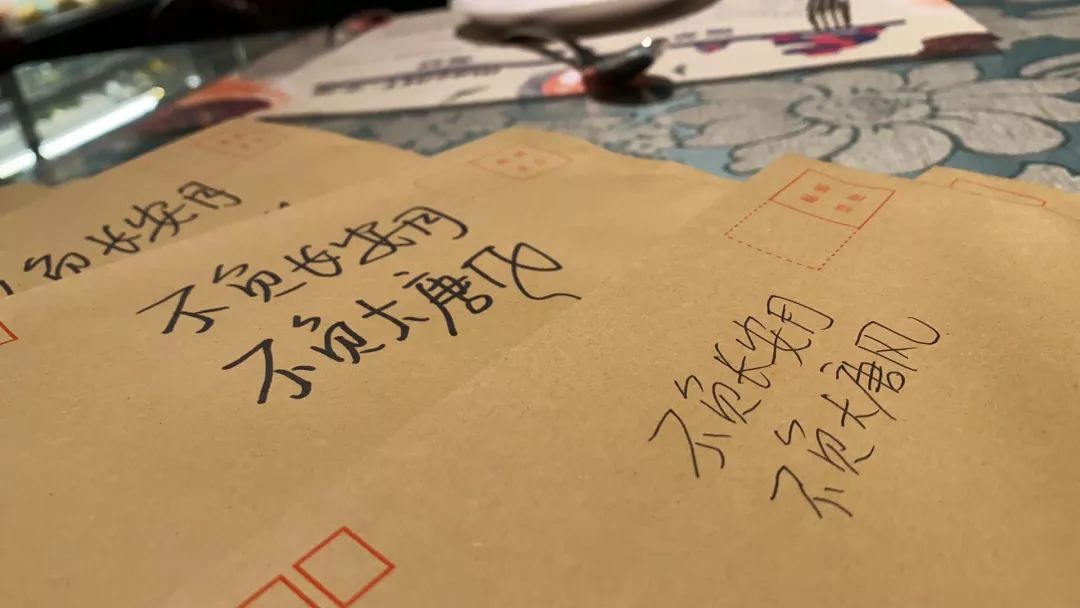 负长安月
不负长安月
不负大唐风
不负长安月
不负大唐风